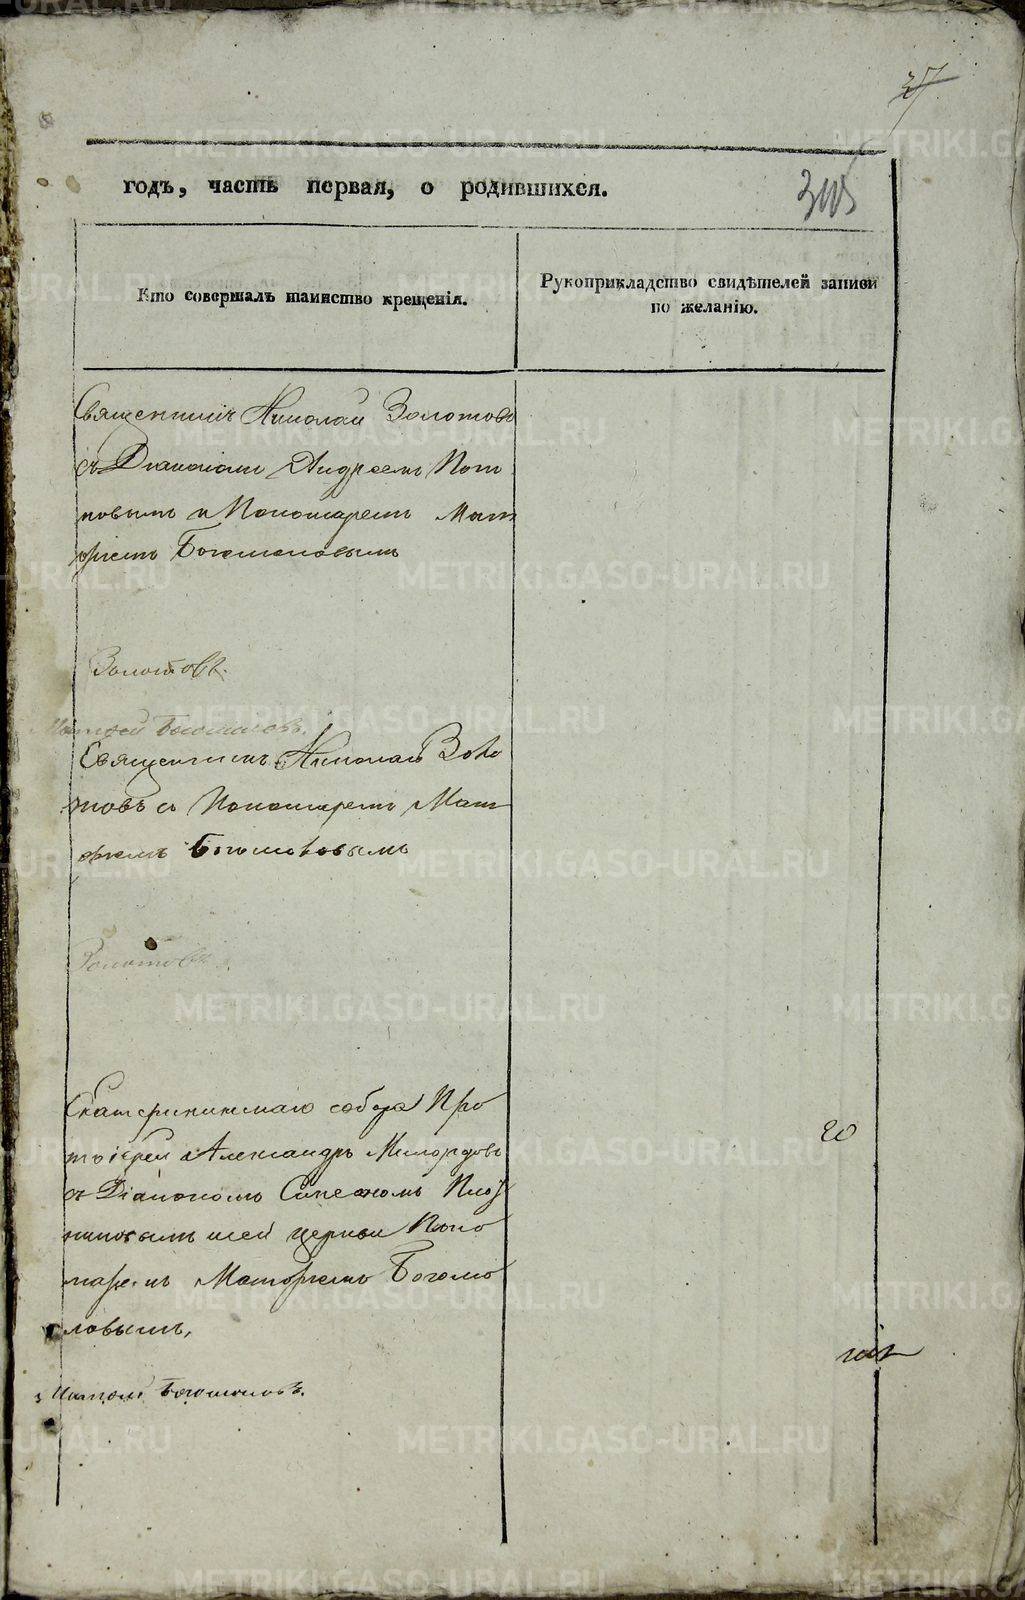 годъ, часть первая, о родившихся.
Кто совершалъ таинство крещенія.
Рукоприкладство свидѣтелей записи
по желанію.
Священникъ Николай Золотовъ
съ Діакономъ Андреемъ
повымъ и Пономаремъ Мат
фіемъ Богомоловымъ
Золотовъ.
Матфей Богомоловъ.
Священникъ Николай Золо
товъ съ Пономаремъ Мат
фіемъ Богомоловымъ
Золотовъ.
Екатерининскаго собора Про
тоіерей Александръ
съ Діакономъ Симеономъ
никовымъ сей церкви Поно
маремъ Матфіемъ Богомо
ловымъ,
Матфей Богомоловъ.
20
METRIKI.GASO-URAL.RU